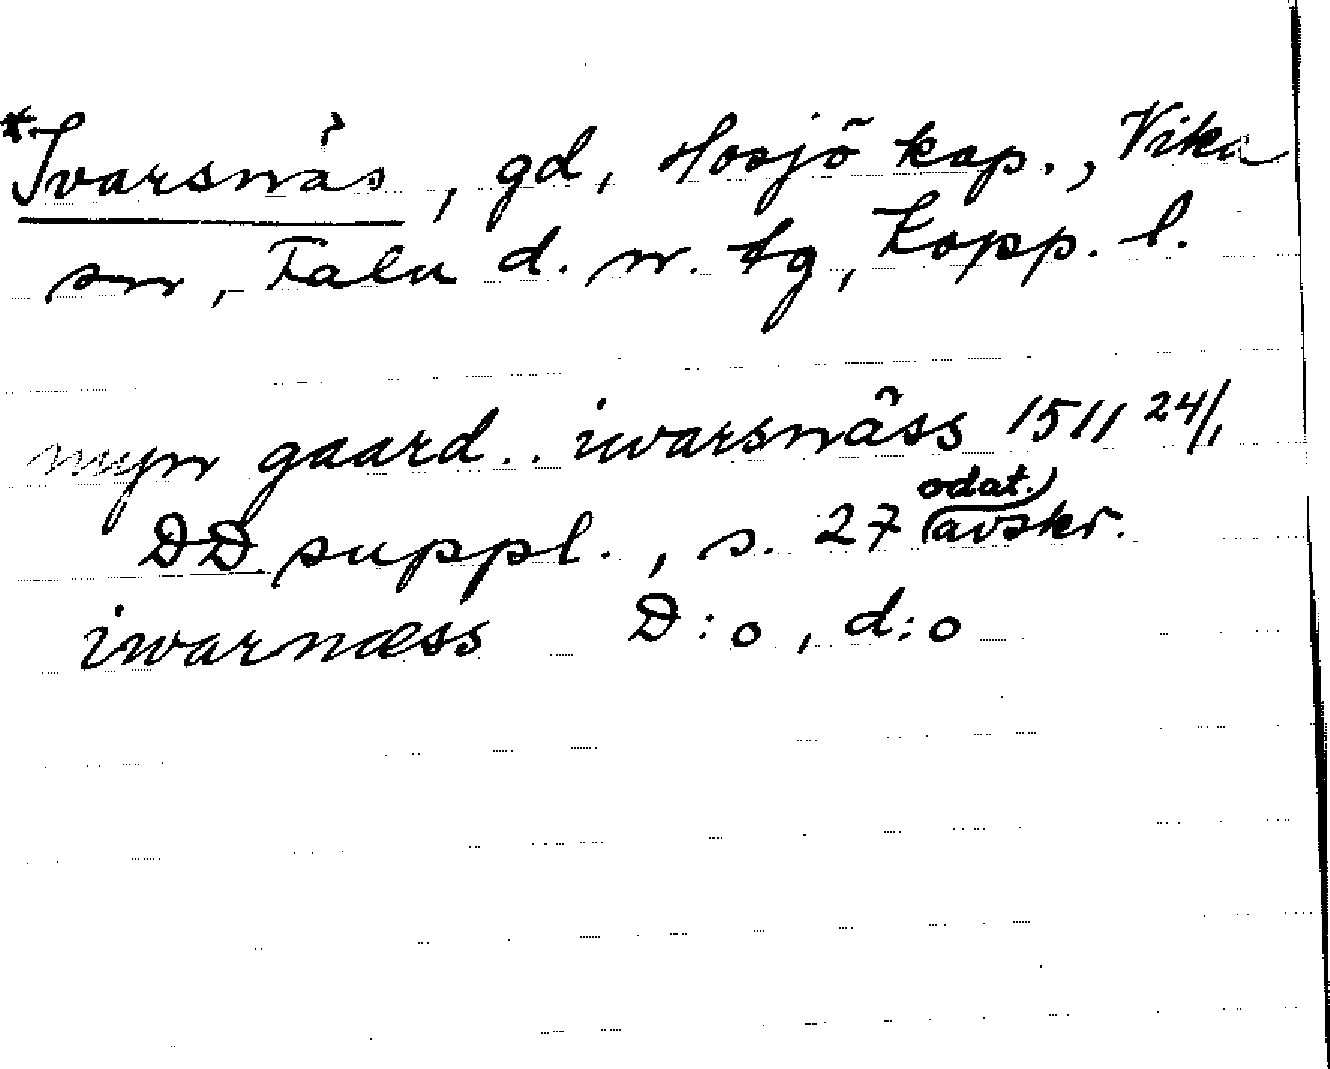 *Ivarsnäs, gd, Hosjö kap., Vika
sn, Falu d. n. tg, Kopp. l.
myn gaard .. iwarsnäss 1511 24/1
DD suppl., s. 27 (odat.) avskr.
iwarnæss D:o, d:o